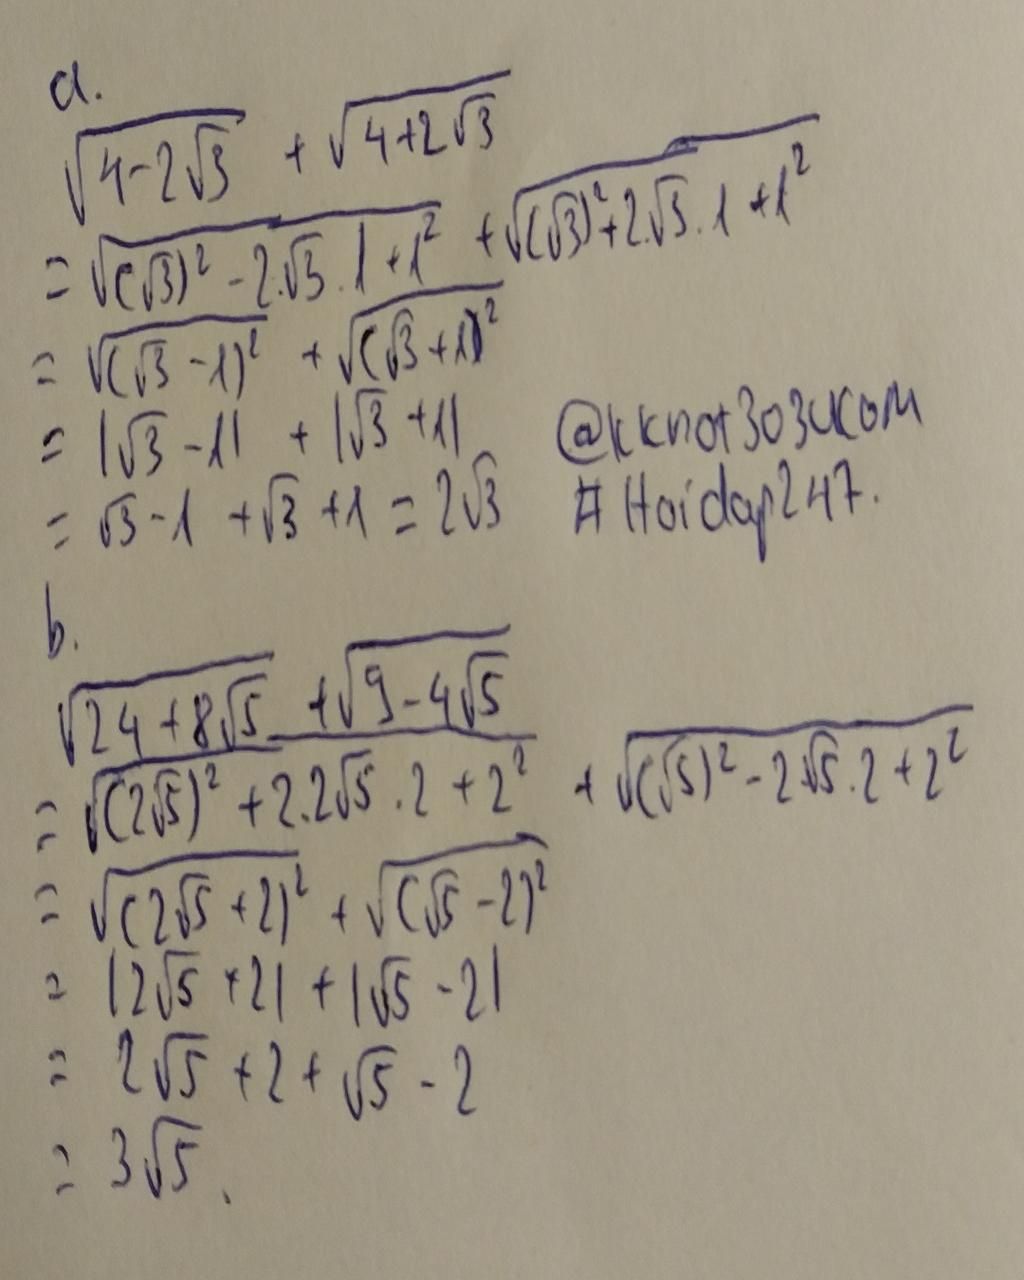 a.
√(4-2√3) + √(4+2√3)
= √((√3)² - 2.√3.1 + 1²) + √((√3)² + 2.√3.1 + 1²)
= √((√3 - 1)²) + √((√3 + 1)²)
= |√3 - 1| + |√3 + 1|
= √3 - 1 + √3 + 1 = 2√3
@kknot303ukom
#Hoidap247.
b.
√(24 + 8√5) + √(9 - 4√5)
= √((2√5)² + 2.2√5.2 + 2²) + √((√5)² - 2√5.2 + 2²)
= √((2√5 + 2)²) + √((√5 - 2)²)
= |2√5 + 2| + |√5 - 2|
= 2√5 + 2 + √5 - 2
= 3√5.